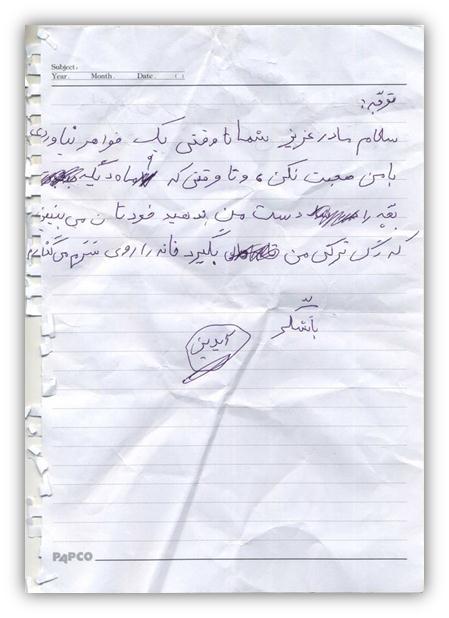 Subject:
Year. Month. Date. ( )
توجّه:
سلام مادر عزیز شما تا وقتی یک خواهر نیاوردی
با من صحبت نکن ، و تا وقتی که ماه دیگه
بچه را دست من ندهید خودتان می بینید
که رگ ترکی من بگیرد خانه را روی سَرَم می گذارم
با تشکّر
آیدین
PAPCO